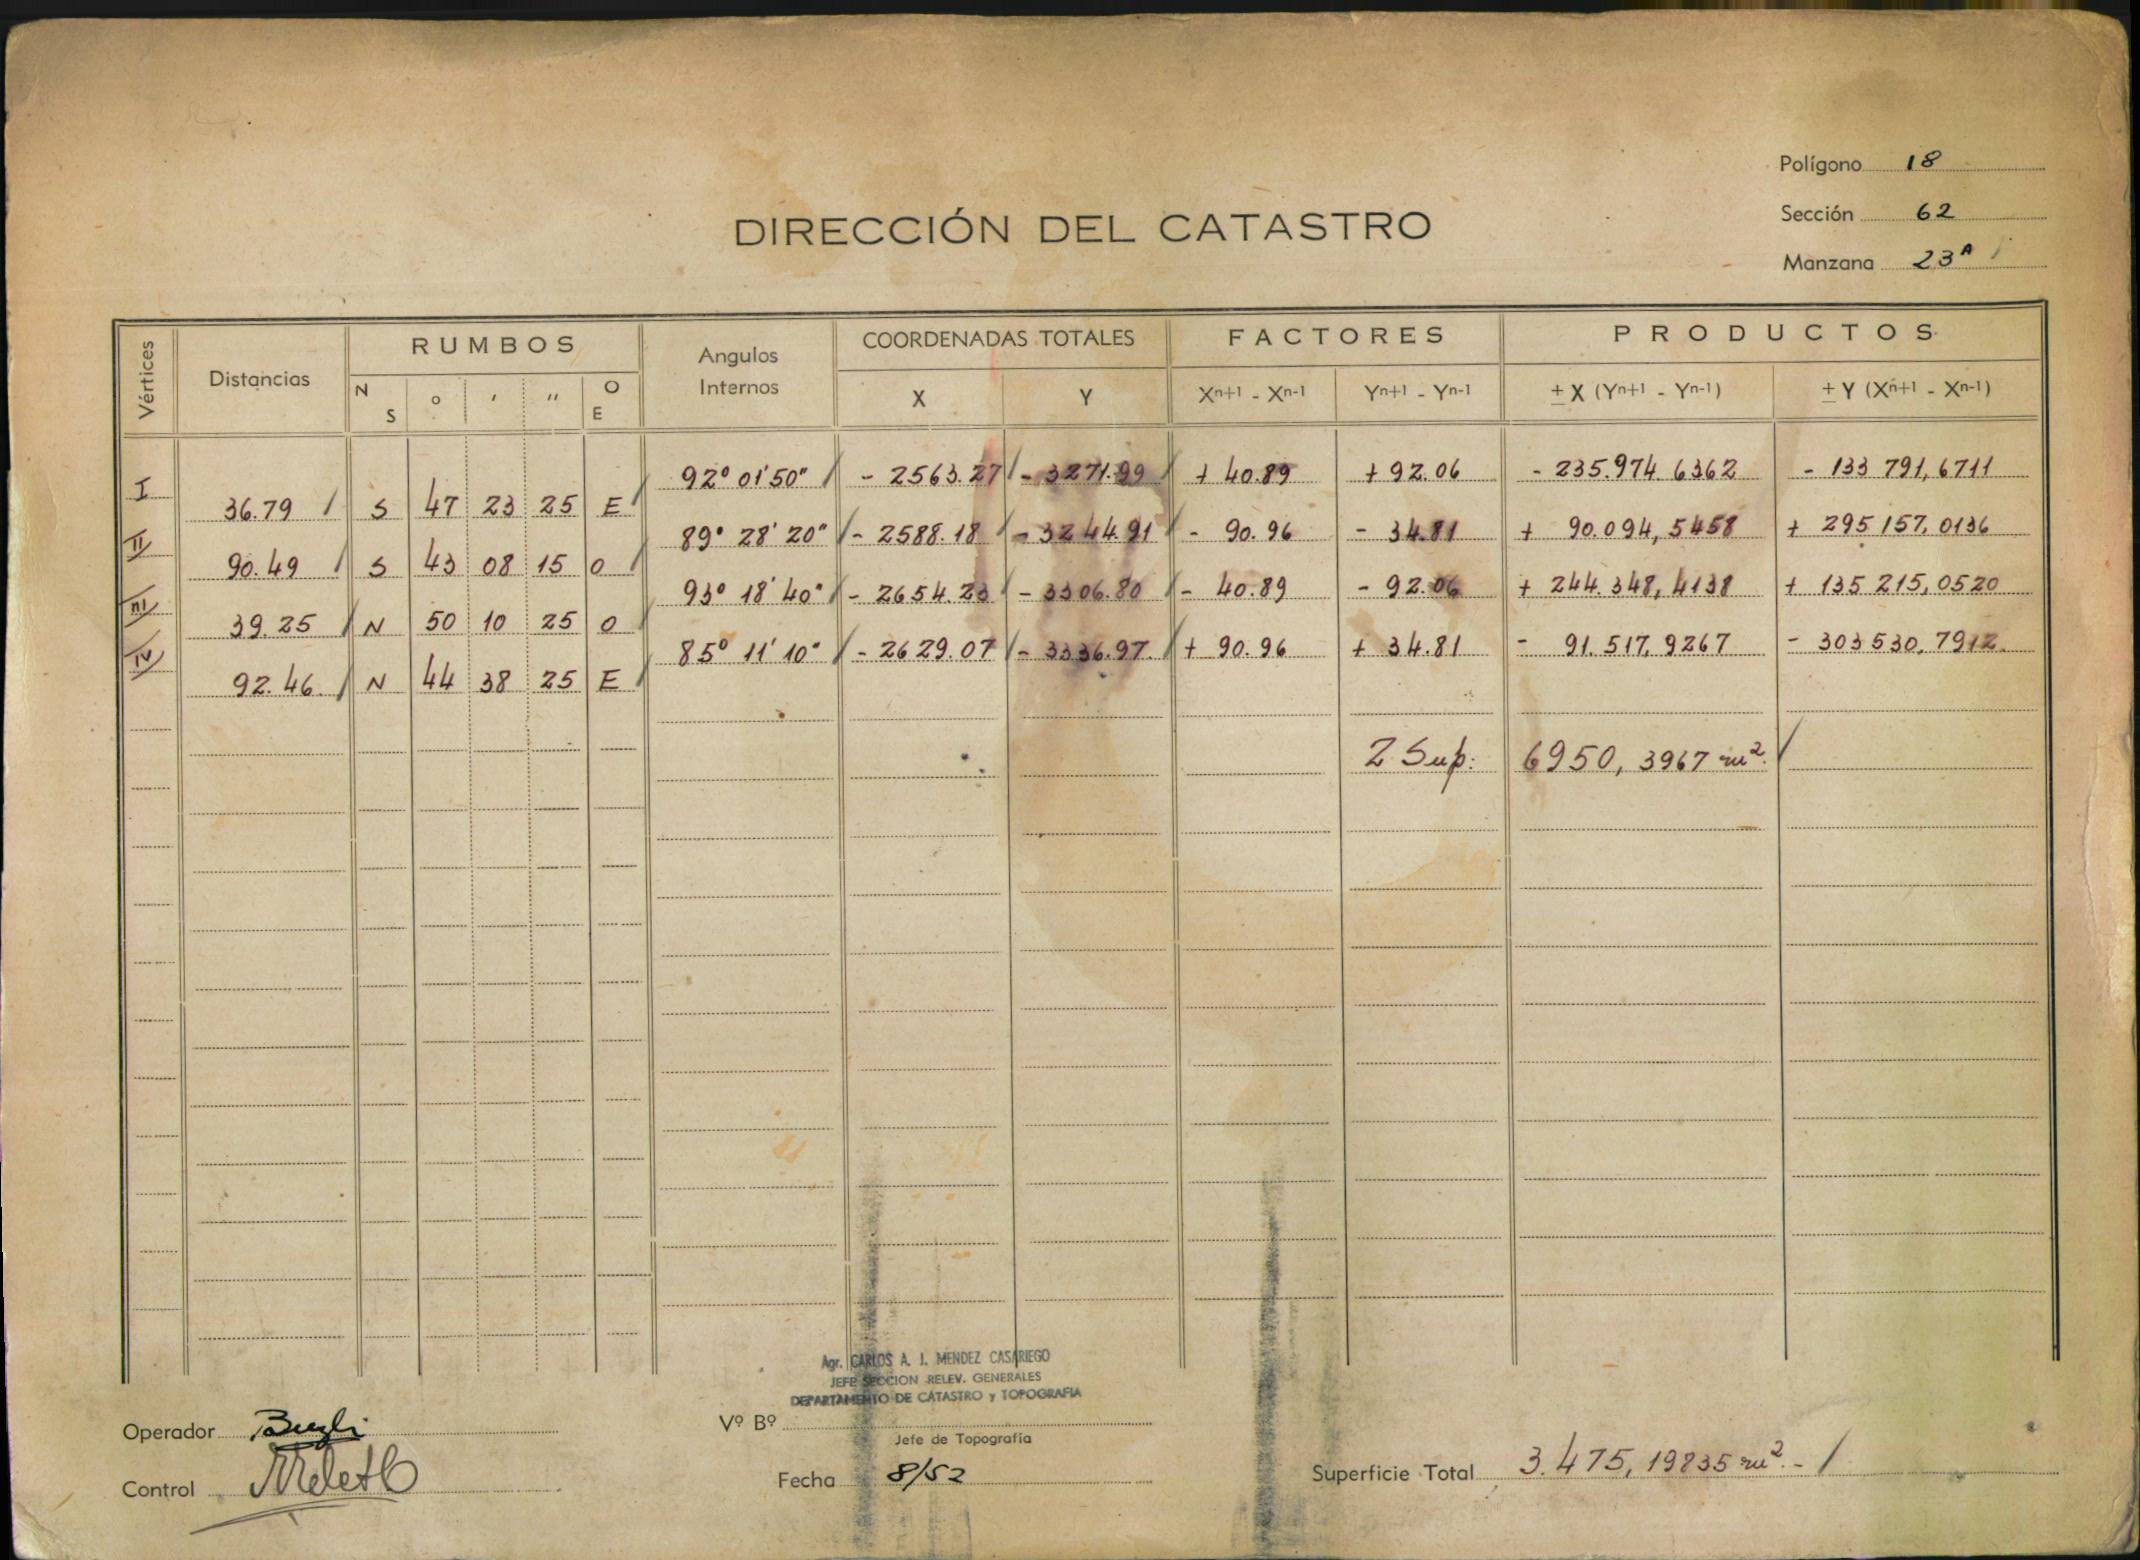 Polígono 18
DIRECCIÓN DEL CATASTRO
Sección 62
Manzana 23A
Vértices Distancias RUMBOS Angulos Internos COORDENADAS TOTALES FACTORES PRODUCTOS
N S o ' '' O E X Y Xn+1 - Xn-1 Yn+1 - Yn-1 ± X (Yn+1 - Yn-1) ± Y (Xn+1 - Xn-1)
I 92° 01' 50" - 2563.27 - 3271.99 + 40.89 + 92.06 - 235.974.6362 - 133 791,6711
36.79 S 47 23 25 E
II 89° 28' 20" - 2588.18 - 3244.91 - 90.96 - 34.81 + 90.094,5458 + 295 157,0136
90.49 S 43 08 15 O
III 93° 18' 40" - 2654.23 - 3306.80 - 40.89 - 92.06 + 244.348,4138 + 135 215,0520
39.25 N 50 10 25 O
IV 85° 11' 10" - 2629.07 - 3336.97 + 90.96 + 34.81 - 91.517,9267 - 303 530,7912
92.46 N 44 38 25 E
2 Sup: 6950,3967 m².
Agr. CARLOS A. I. MENDEZ CASARIEGO
JEFE SECCION RELEV. GENERALES
DEPARTAMENTO DE CATASTRO y TOPOGRAFIA
Operador
Vº Bº
Jefe de Topografía
Control
Fecha 8/52
Superficie Total 3.475,19835 m². -